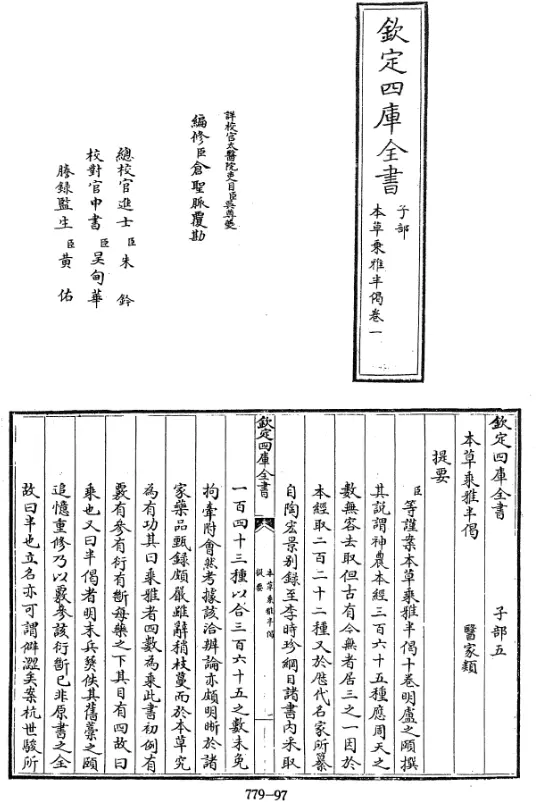 欽定四庫全書
子部
本草乗雅半偈卷一
詳校官太醫院吏目臣
編修臣倉聖脈覆勘
總校官進士臣朱鈐
校對官中書臣吳甸華
謄錄監生臣黃佑
欽定四庫全書 子部五
本草乗雅半偈 醫家類
提要
臣等謹案本草乗雅半偈十卷明盧之頤撰
其説謂神農本經三百六十五種應周天之
數無容去取但古有今無者居三之一因於
本經取二百二十二種又於歴代名家所纂
自陶宏景別錄至李時珍綱目諸書内采取
欽定四庫全書
本草乗雅半偈
提要
一
一百四十三種以合三百六十五之數未免
拘牽附會然考據該洽辨論亦頗明晰於諸
家藥品甄錄頗嚴雖辭稍枝蔓而於本草究
為有功其曰乗雅者四數為乗此書初例有
覈有參有衍有斷每藥之下其目有四故曰
乗也又曰半偈者明末兵燹佚其舊藁之頤
追憶重修乃以覈參該衍斷已非原書之全
故曰半也立名亦可謂僻澀矣案杭世駿所
779-97